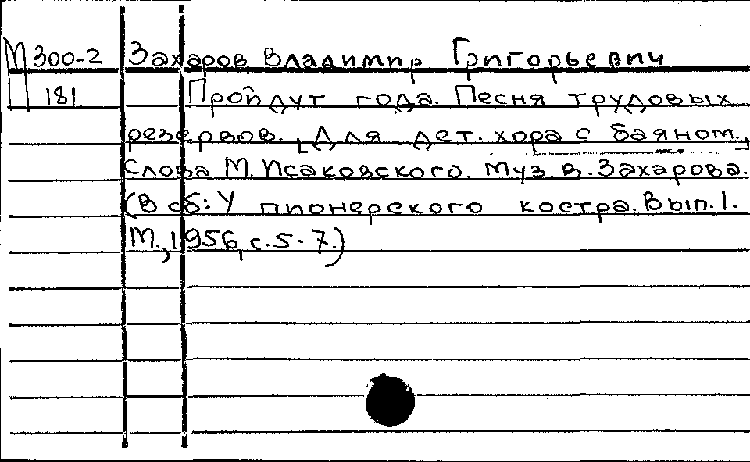 М 300-2 Захаров Владимир Григорьевич
П 181 Пройдут года. Песня трудовых
резервов. [Для дет. хора с баяном.]
Слова М. Исаковского. Муз. В. Захарова.
(В сб: У пионерского костра. Вып. 1.
М., 1956, с. 5-7.)